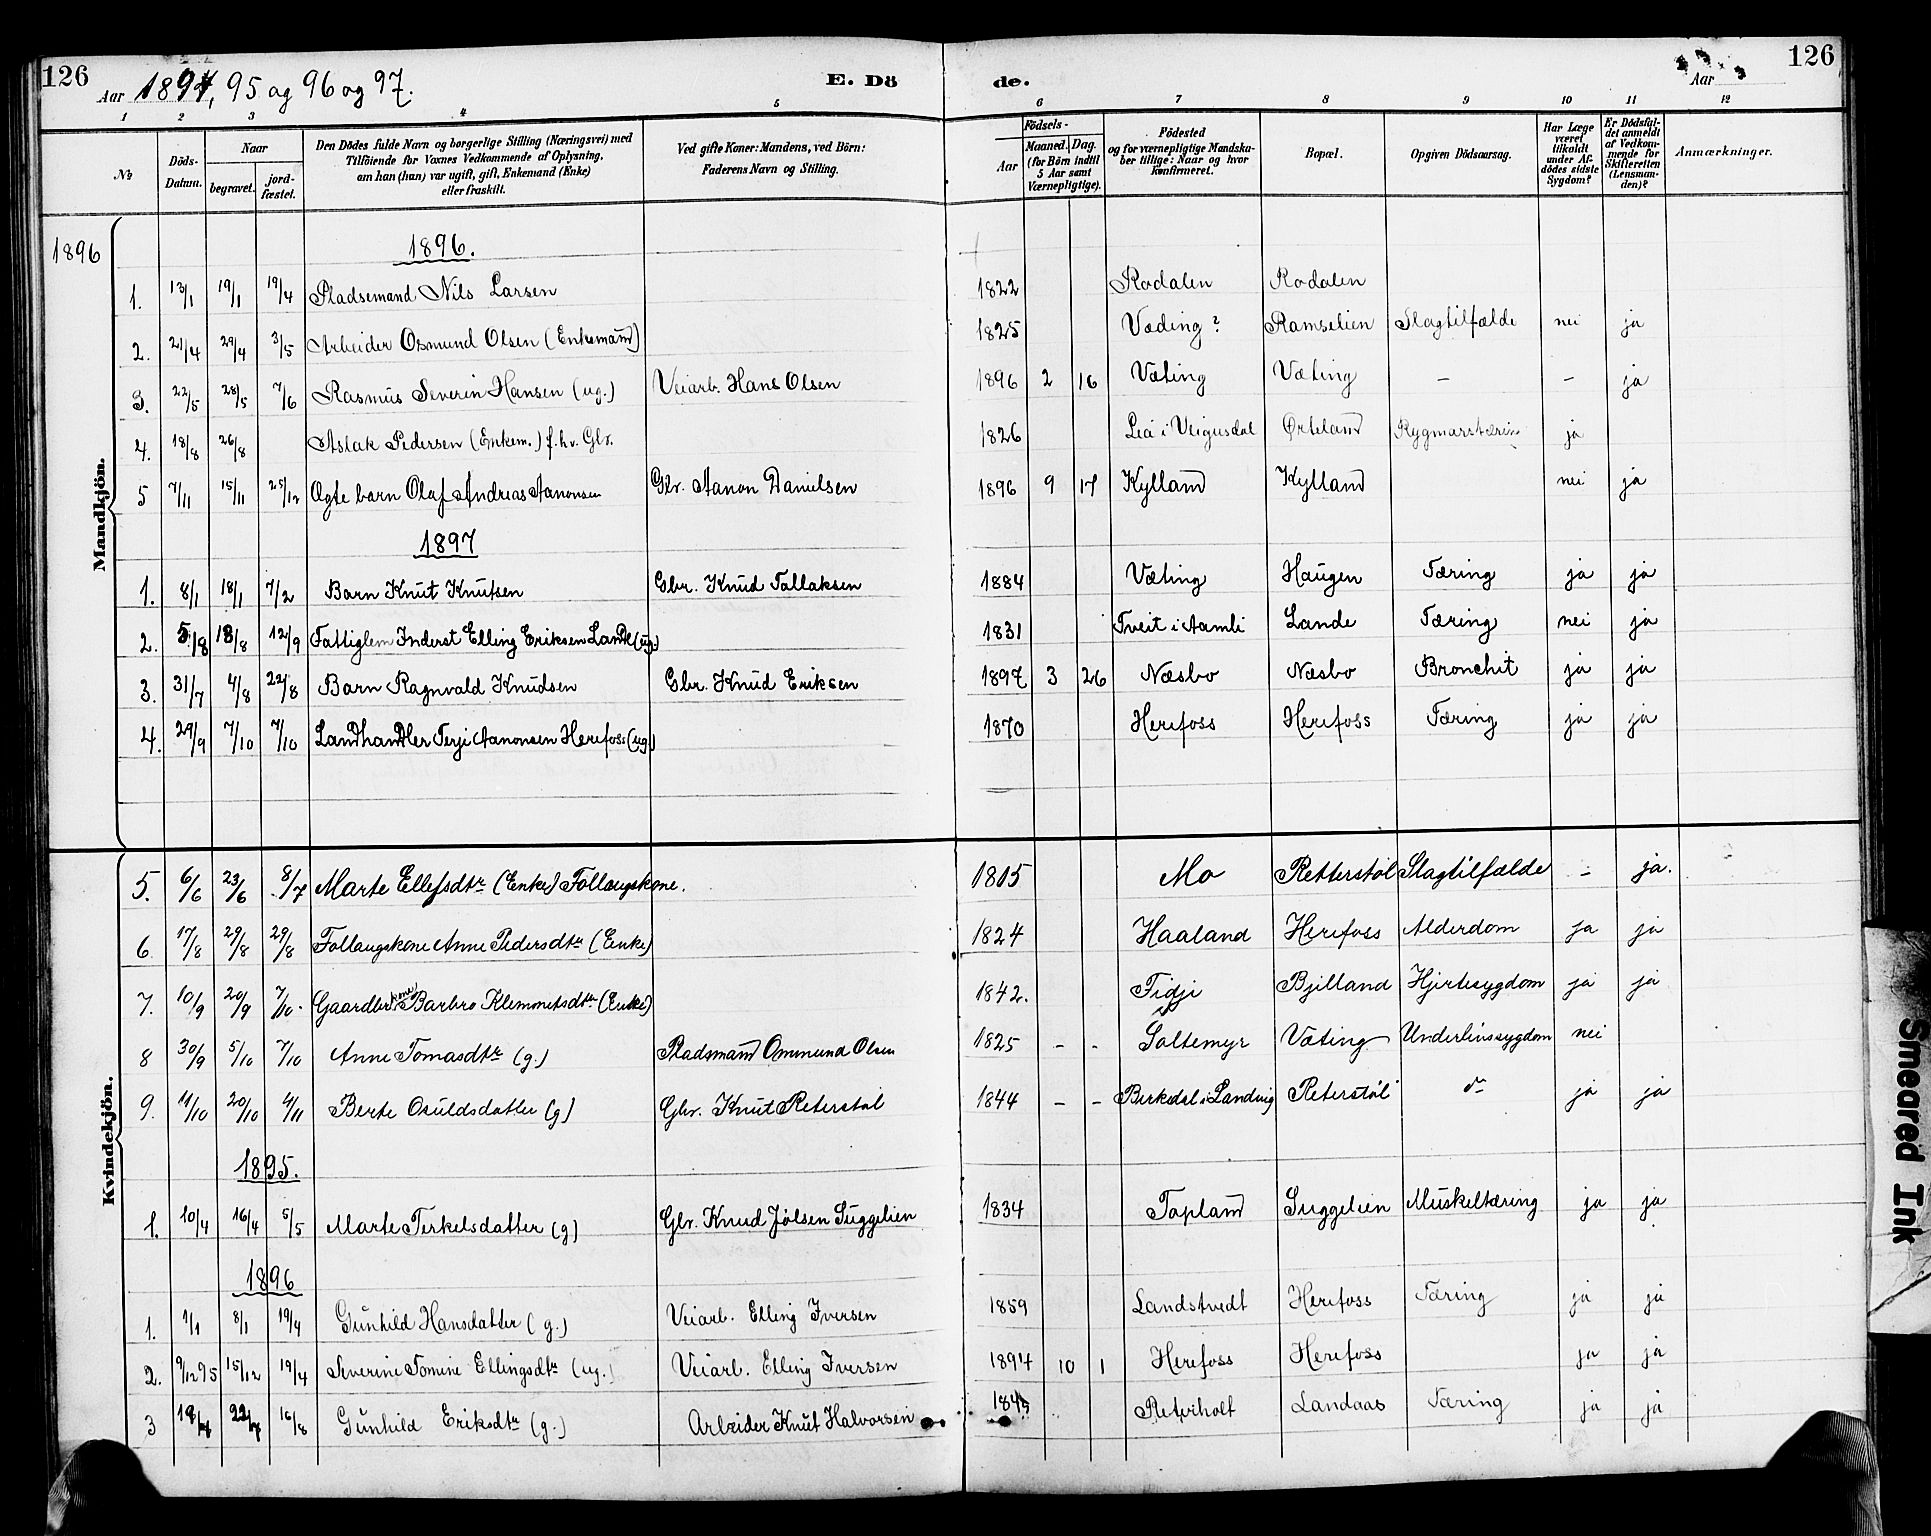 126 Aar 1894, 95 og 96 og 97. E. Dö de. Aar 126
1 2 3 4 5 6 7 8 9 10 11 12
№ Döds-Datum. Naar begravet. jord-fæstet. Den Dödes fulde Navn og borgerlige Stilling (Næringsvei) med Tilföiende for Voxnes Vedkommende af Oplysning, om han (hun) var ugift, gift, Enkemand (Enke) eller fraskilt. Ved gifte Koner: Mandens, ved Börn: Faderens Navn og Stilling. Födsels- Aar Maaned. Dag. (for Börn indtil 5 Aar samt Værnepligtige). Födested og for værnepligtige Mandskaber tillige: Naar og hvor konfirmeret. Bopæl. Opgiven Dödsaarsag. Har Læge været tilkaldt under Afdödes sidste Sygdom? Er Dödsfaldet anmeldt af Vedkommende for Skifteretten (Lensmanden)? Anmærkninger.
Mandkjön.
1896 1896.
1. 13/1 19/1 19/4 Pladsemand Nils Larsen 1822 Rodalen Rodalen
2. 21/4 29/4 3/5 Arbeider Osmund Olsen (Enkemand) 1825 Væding? Ramselien Slagtilfælde nei ja
3. 22/5 28/5 7/6 Rasmus Severin Hansen (ug.) Veiarb. Hans Olsen 1896 2 16 Væting Væting – – ja
4. 18/8 26/8 Aslak Pedersen (Enkem.) f.hv. Gbr. 1826 Lia i Veigusdal Örteland ja
5 7/11 15/11 25/12 Ægte barn Olaf Andreas Aanonsen Gbr. Aanon Danielsen 1896 9 17 Kylland Kylland nei ja
1897
1. 8/1 18/1 7/2 Barn Knut Knutsen Gbr. Knud Tallaksen 1884 Væting Haugen Tæring ja ja
2. 5/8 13/8 12/9 Fattiglem Inderst Elling Eriksen Lande (ug.) 1831 Tveit i Aamli Lande Tæring nei ja
3. 31/7 4/8 22/8 Barn Ragnvald Knudsen Gbr. Knud Eriksen 1897 3 26 Næsbo Næsbo Bronchit ja ja
4. 29/9 7/10 7/10 Landhandler Terji Aanonsen Herefoss (ug.) 1870 Herefoss Herefoss Tæring ja ja
Kvindekjön.
5. 6/6 23/6 8/7 Marte Ellefsdtr (Enke) Follaugskone. 1815 Mo Retterstøl Slagtilfælde – ja.
6. 17/8 29/8 29/8 Follaugskone Anne Pedersdtr (Enke) 1824 Haaland Herefoss Alderdom ja ja
7. 10/9 20/9 7/10. Gaardbr.kone Barbro Klemmetsdtr (Enke) 1842. Tidji Bjilland Hjertesygdom ja ja
8 30/9 5/10 7/10 Anne Tomasdtr (g.) Pladsmand Ommund Olsen 1825 – – Saltemyr Væting Underlivssygdom nei
9. 11/10 20/10 4/11 Berte Osuldsdatter (g) Gbr. Knut Reterstøl 1844 – – Birkedal i Landvig Reterstøl do ja ja
1895.
1. 10/4 16/4 5/5 Marte Terkelsdatter (g) Gbr. Knud Jølsen Suggelien 1834 Topland Suggelien Muskeltæring ja ja
1896
1. 1/1 8/1 19/4 Gunhild Hansdatter (g.) Veiarb. Elling Iversen 1859 Landstvedt Herefoss Tæring ja ja
2. 9/12 95 15/12 19/4 Severine Tomine Ellingsdtr (ug.) Veiarb. Elling Iversen 1894 10 1 Herefoss Herefoss ja ja
3 18/7 22/7 16/8 Gunhild Eriksdtr (g.) Arbeider Knut Halvorsen Retviholt Landaas Tæring ja ja
Smeared Ink